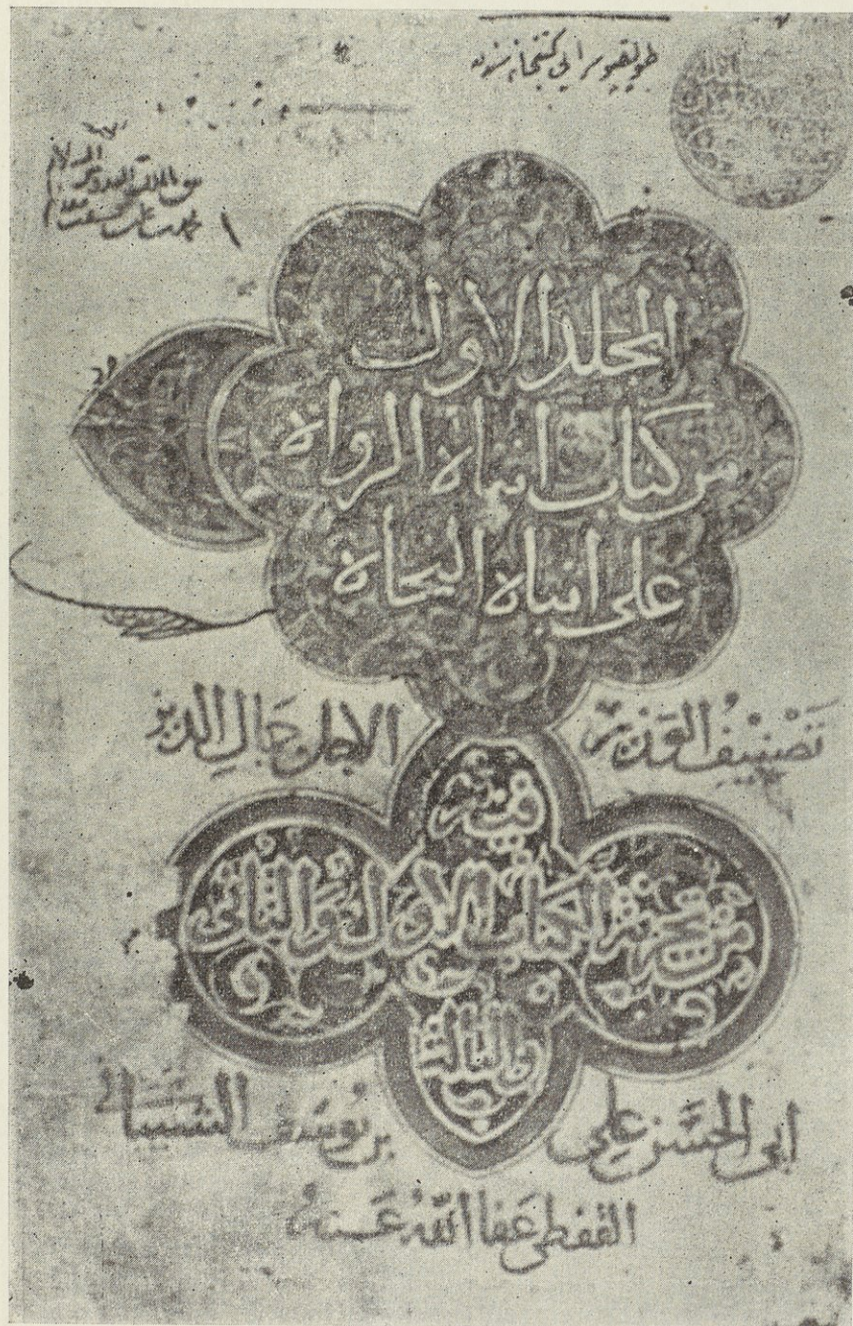 طوپقپوسرايى كتبخانه سنده
المجلد الاول
من كتاب انباه الرواة
على انباه النحاة
تصنيف الوزير الاجل جمال الدين
فيه
من التجزئة الكتاب الاول والثاني
والثالث
ابي الحسن علي بن يوسف الشيباني
القفطي عفا الله عنه